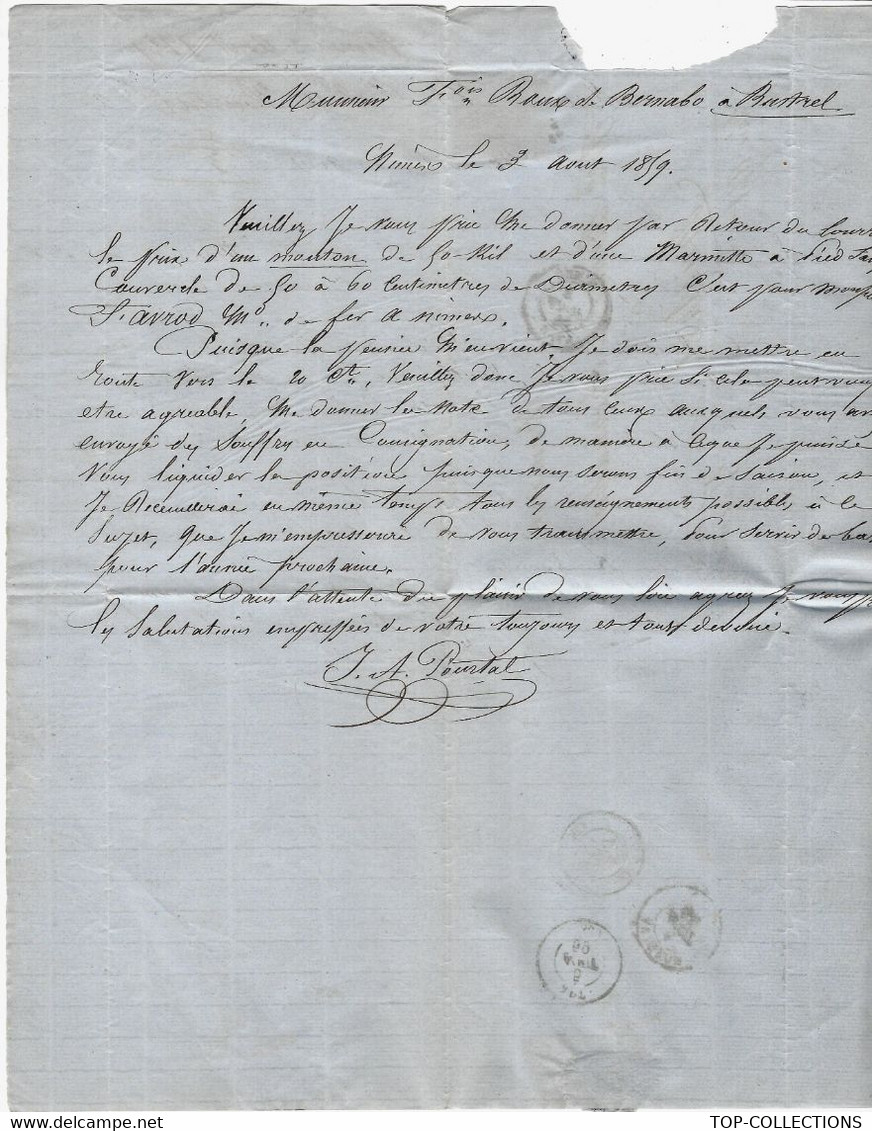 Monsieur F.ois Roux de Bernabo à Rustrel
Nimes le 3 Aout 1859.
Veuillez Je vous prie me donner par Retour du Courr
le prix d'un mouton de 50 Kil et d'une Marmitte à Pied San
Couvercle de 50 à 60 Centimetres de Diametres C'est pour
M.d de fer a nimes.
Puisque la pensée m'en vient, Je dois me mettre en
Route vers le 20 Ct, Veuillez donc Je vous prie si cela peut vous
etre agreable, me donner la Note de tous ceux auxquels vous av
envoyé des Souffres en Consignations, de manière à ce que Je puisse
vous liquider la position puisque nous serons fin de saison, et
Je Receuillerai en même temps tous les renseignements possibles à ce
Sujet, que Je m'empresserai de vous transmettre, pour servir de ba
pour l'année prochaine.
Dans l'attente du plaisir de vous lire agreez Je vous p
les Salutations empressées de votre toujours et tout devoué.
J. A. Pourtal
TOP-COLLECTIONS